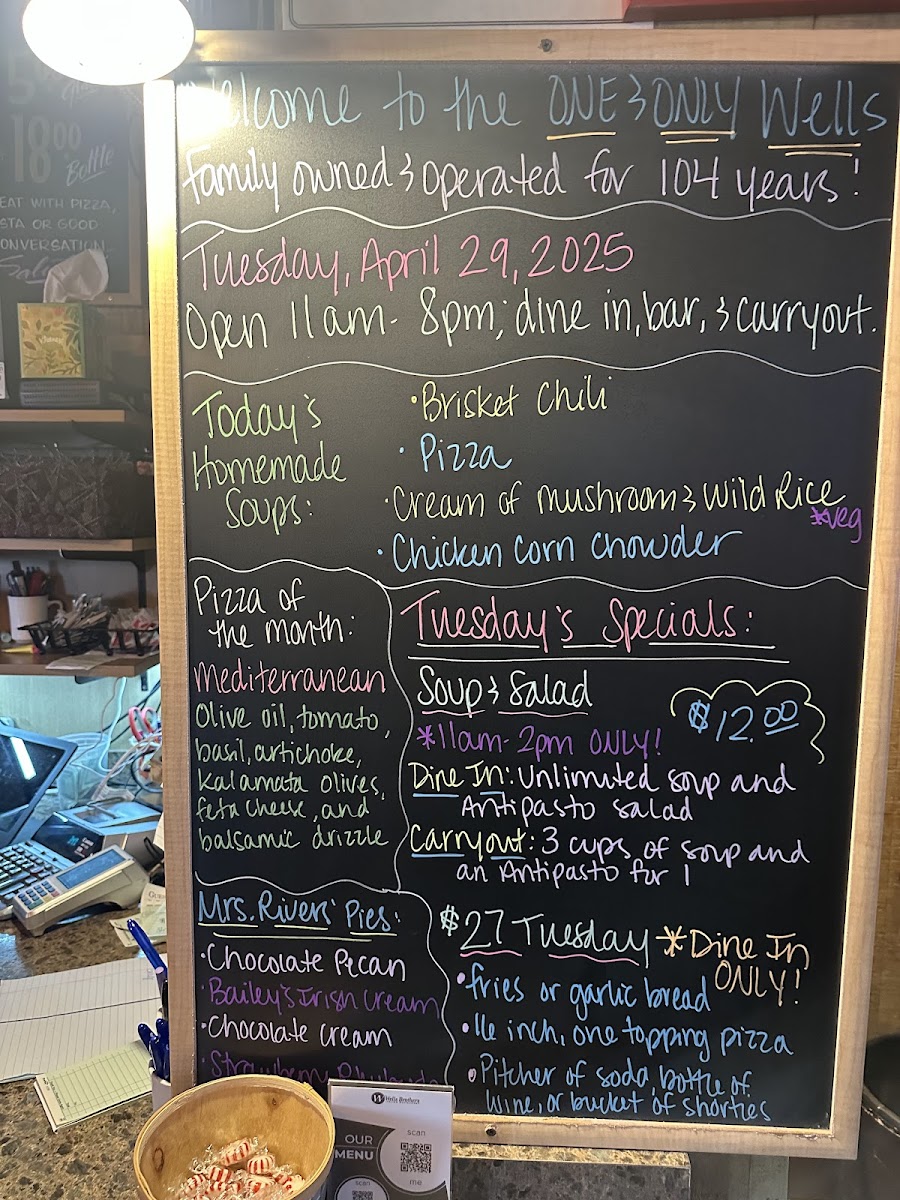 Welcome to the ONE & ONLY Wells
Family owned & operated for 104 years!
Tuesday, April 29, 2025
Open 11am - 8pm; dine in, bar, & carryout.
Today's
Homemade
Soups:
• Brisket Chili
• Pizza
• Cream of mushroom & Wild Rice
*veg
• Chicken Corn Chowder
Pizza of
the month:
Mediterranean
Olive oil, tomato,
basil, artichoke,
kalamata olives,
feta cheese, and
balsamic drizzle
Mrs. Rivers' Pies:
• Chocolate Pecan
• Bailey's Irish Cream
• Chocolate Cream
• Strawberry Rhubarb
Tuesday's Specials:
Soup & Salad
$12.00
*11am-2pm ONLY!
Dine In: Unlimited soup and
Antipasto salad
Carryout: 3 cups of soup and
an Antipasto for 1
$27 Tuesday *Dine In
ONLY!
• fries or garlic bread
• 16 inch, one topping pizza
• Pitcher of soda, bottle of
wine, or bucket of shorties
18.00
Bottle
EAT WITH PIZZA,
STA OR GOOD
ONVERSATION
Kleenex
Wells Brothers
OUR
MENU
scan
me
scan